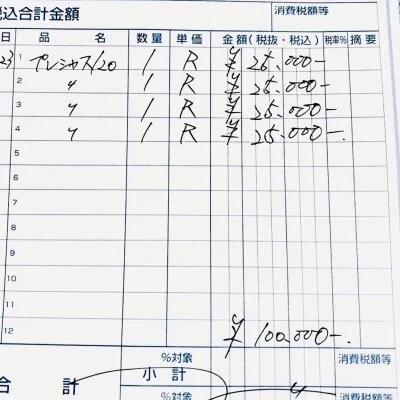 税込合計金額 消費税額等
日 品 名 数量 単価 金額(税抜・税込) 税率% 摘要
23 プレシャス120 1 R ¥25.000-
2 〃 1 R ¥25.000-
3 〃 1 R ¥25.000-
4 〃 1 R ¥25.000-.
5
6
7
8
9
10
11
12 ¥100.000-.
%対象 消費税額等
合 計 小 計
%対象 消費税額等